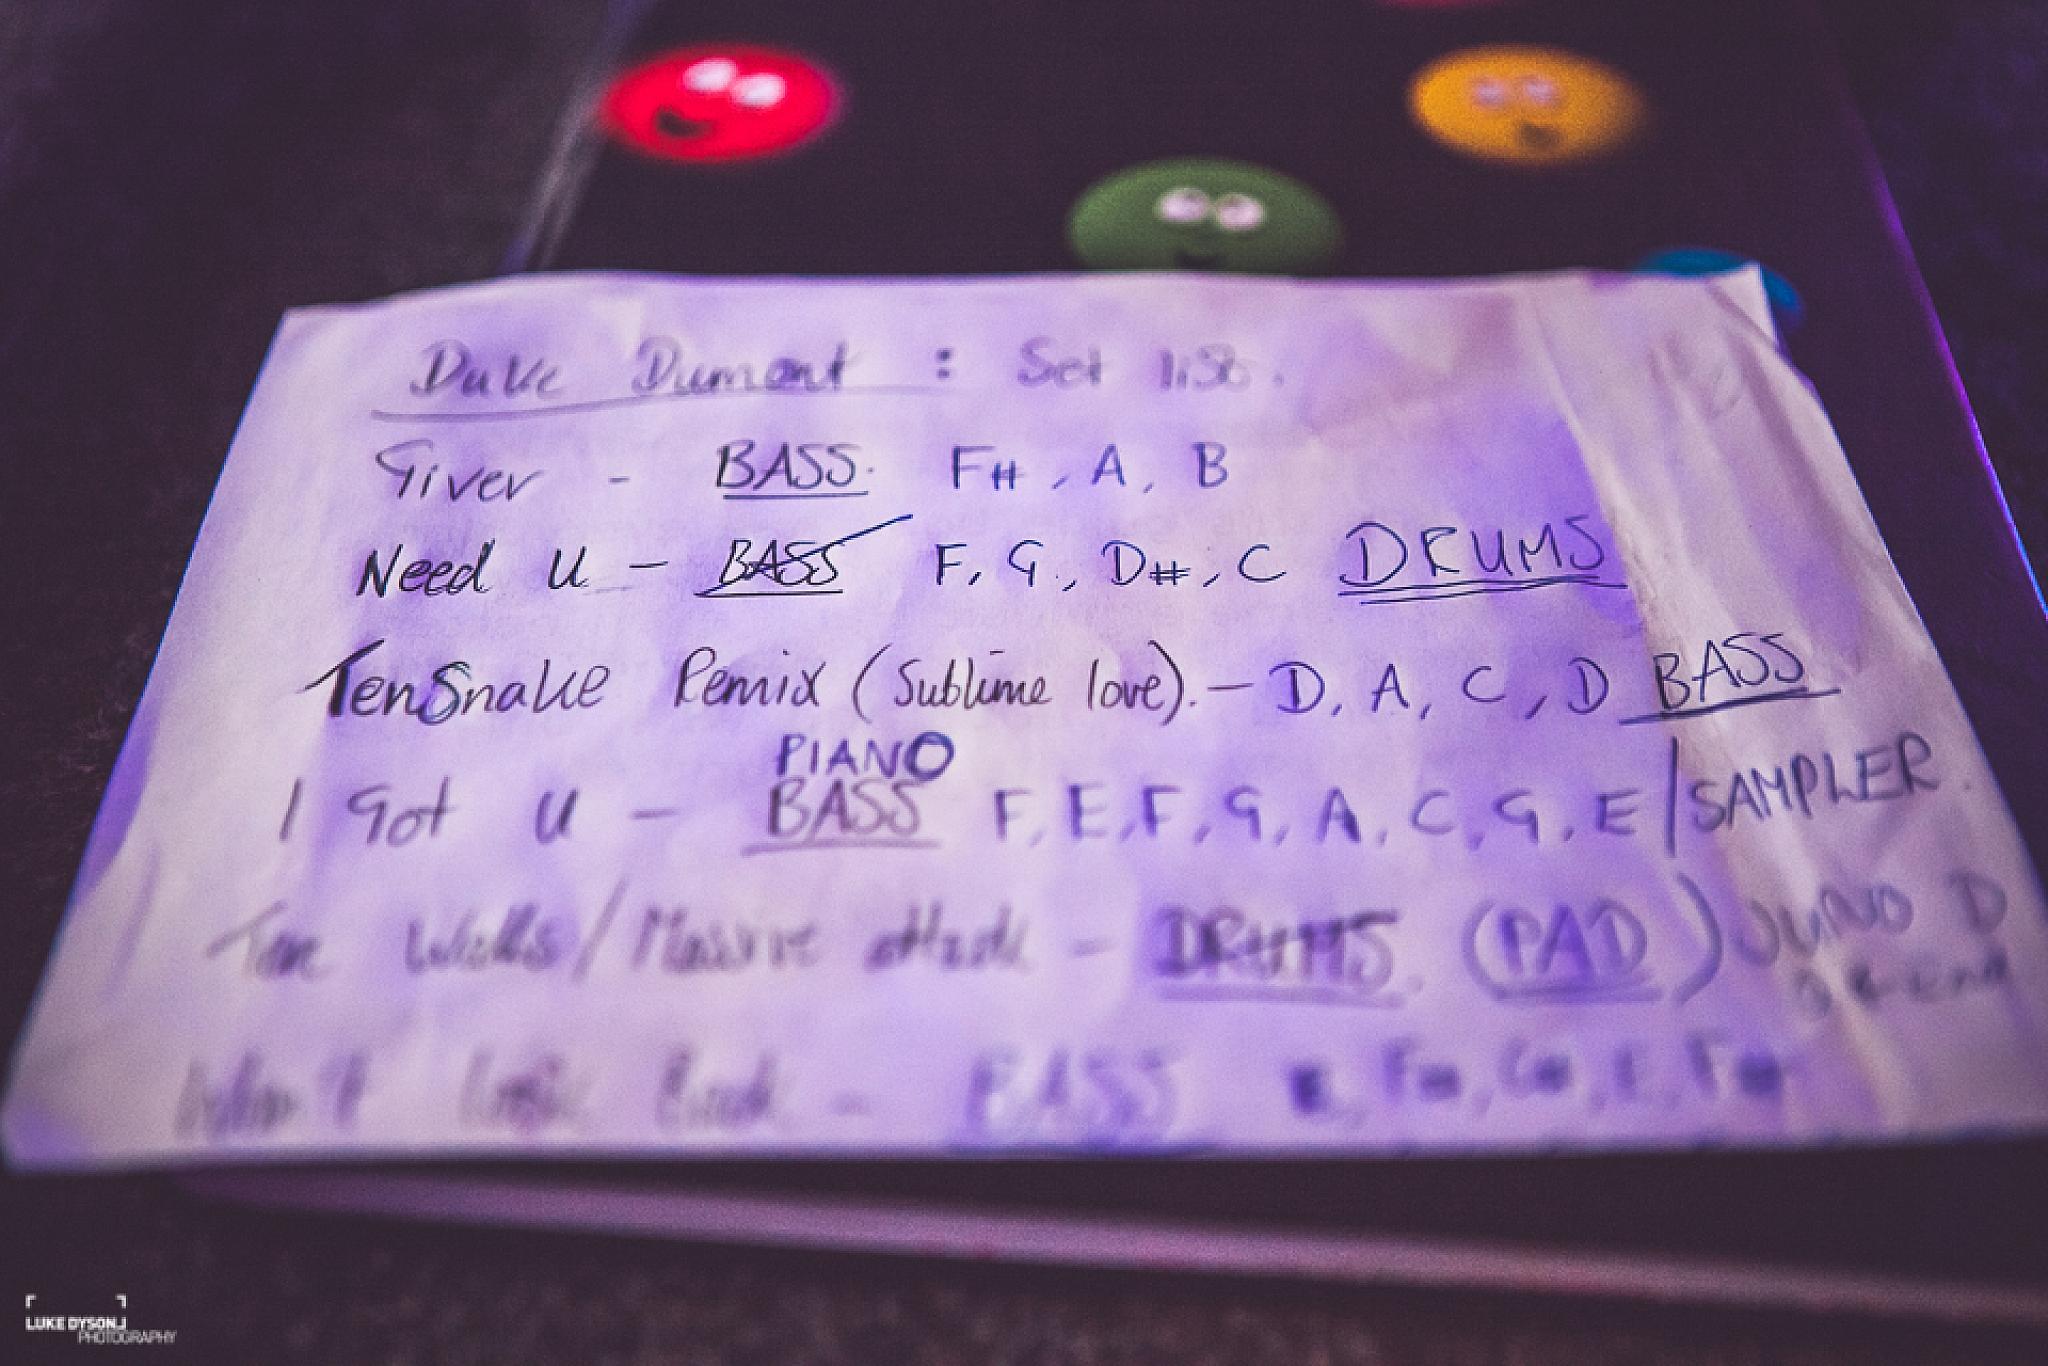 Duke Dumont : Set list.
Giver - BASS. F#, A, B
Need U - BASS F, G, D#, C DRUMS
TenSnake Remix (Sublime love). - D, A, C, D BASS
PIANO
I Got U - BASS F, E, F, G, A, C, G, E / SAMPLER.
Ten Walls / Massive Attack - DRUMS. (PAD) JUNO D
Look Back - BASS
LUKE DYSON
PHOTOGRAPHY